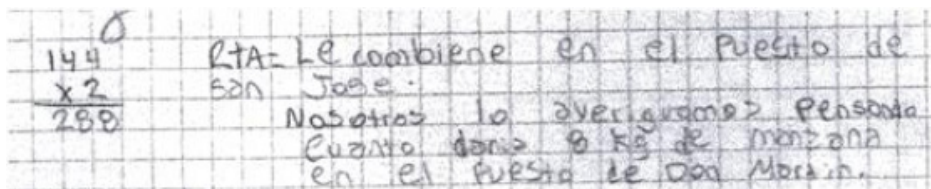 144
x2
288
RTA= Le combiene en el Puesto de
san Jose.
Nosotros lo averiguamos Pensando
Cuanto daria 8 kg de manzana
en el Puesto de Don Martin.